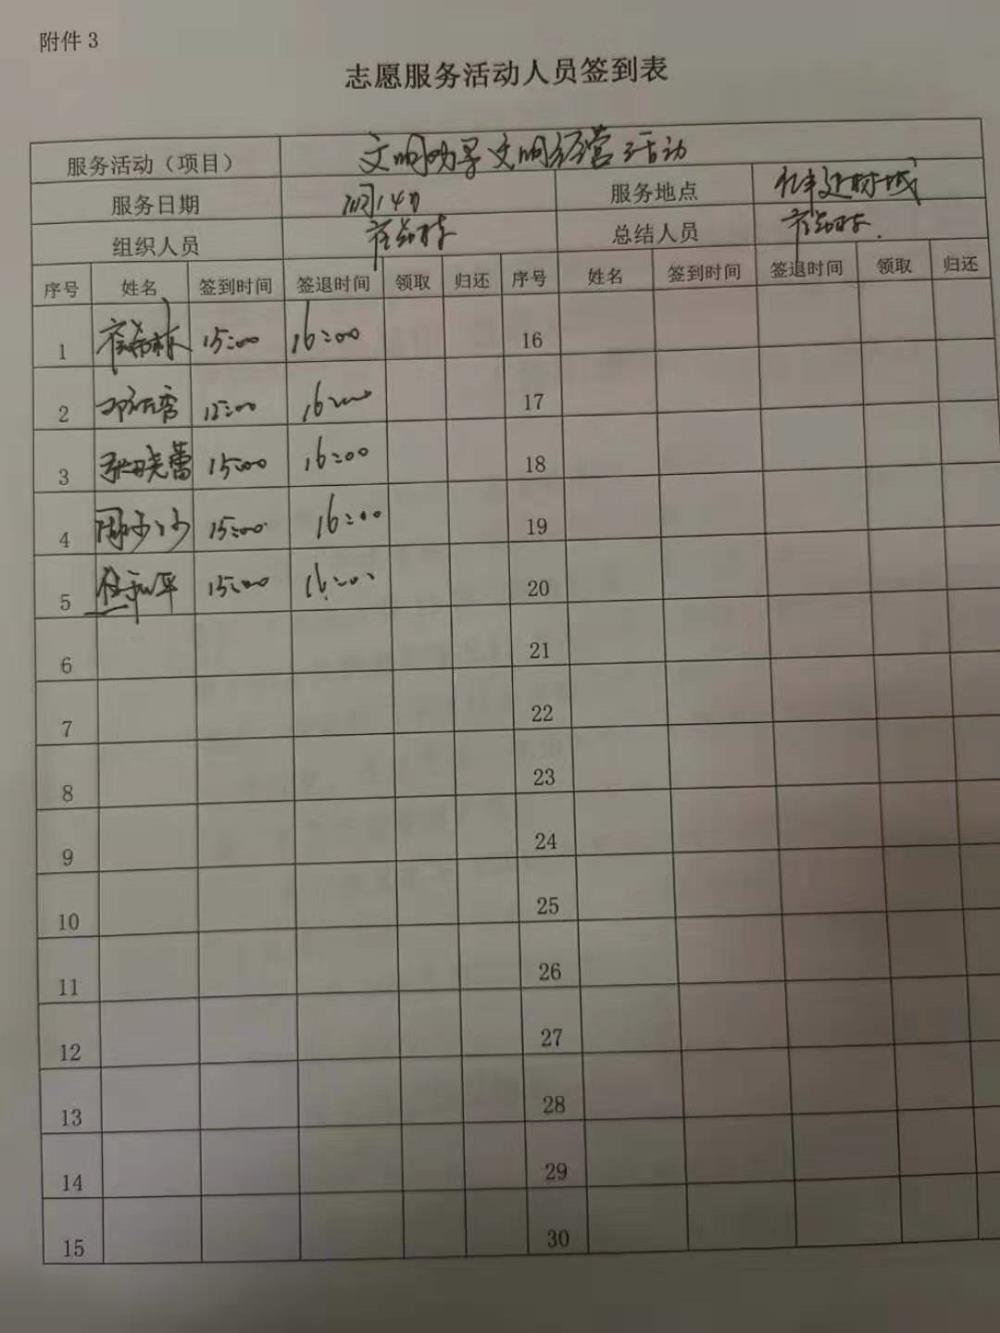 附件 3
志愿服务活动人员签到表
服务活动（项目） 文明劝导文明经营活动
服务日期 服务地点 建材城
组织人员 总结人员
序号 姓名 签到时间 签退时间 领取 归还 序号 姓名 签到时间 签退时间 领取 归还
1 15:00 16:00 16
2 15:00 16:00 17
3 张晓蕾 15:00 16:00 18
4 周少少 15:00 16:00 19
5 15:00 16:00 20
6 21
7 22
8 23
9 24
10 25
11 26
12 27
13 28
14 29
15 30